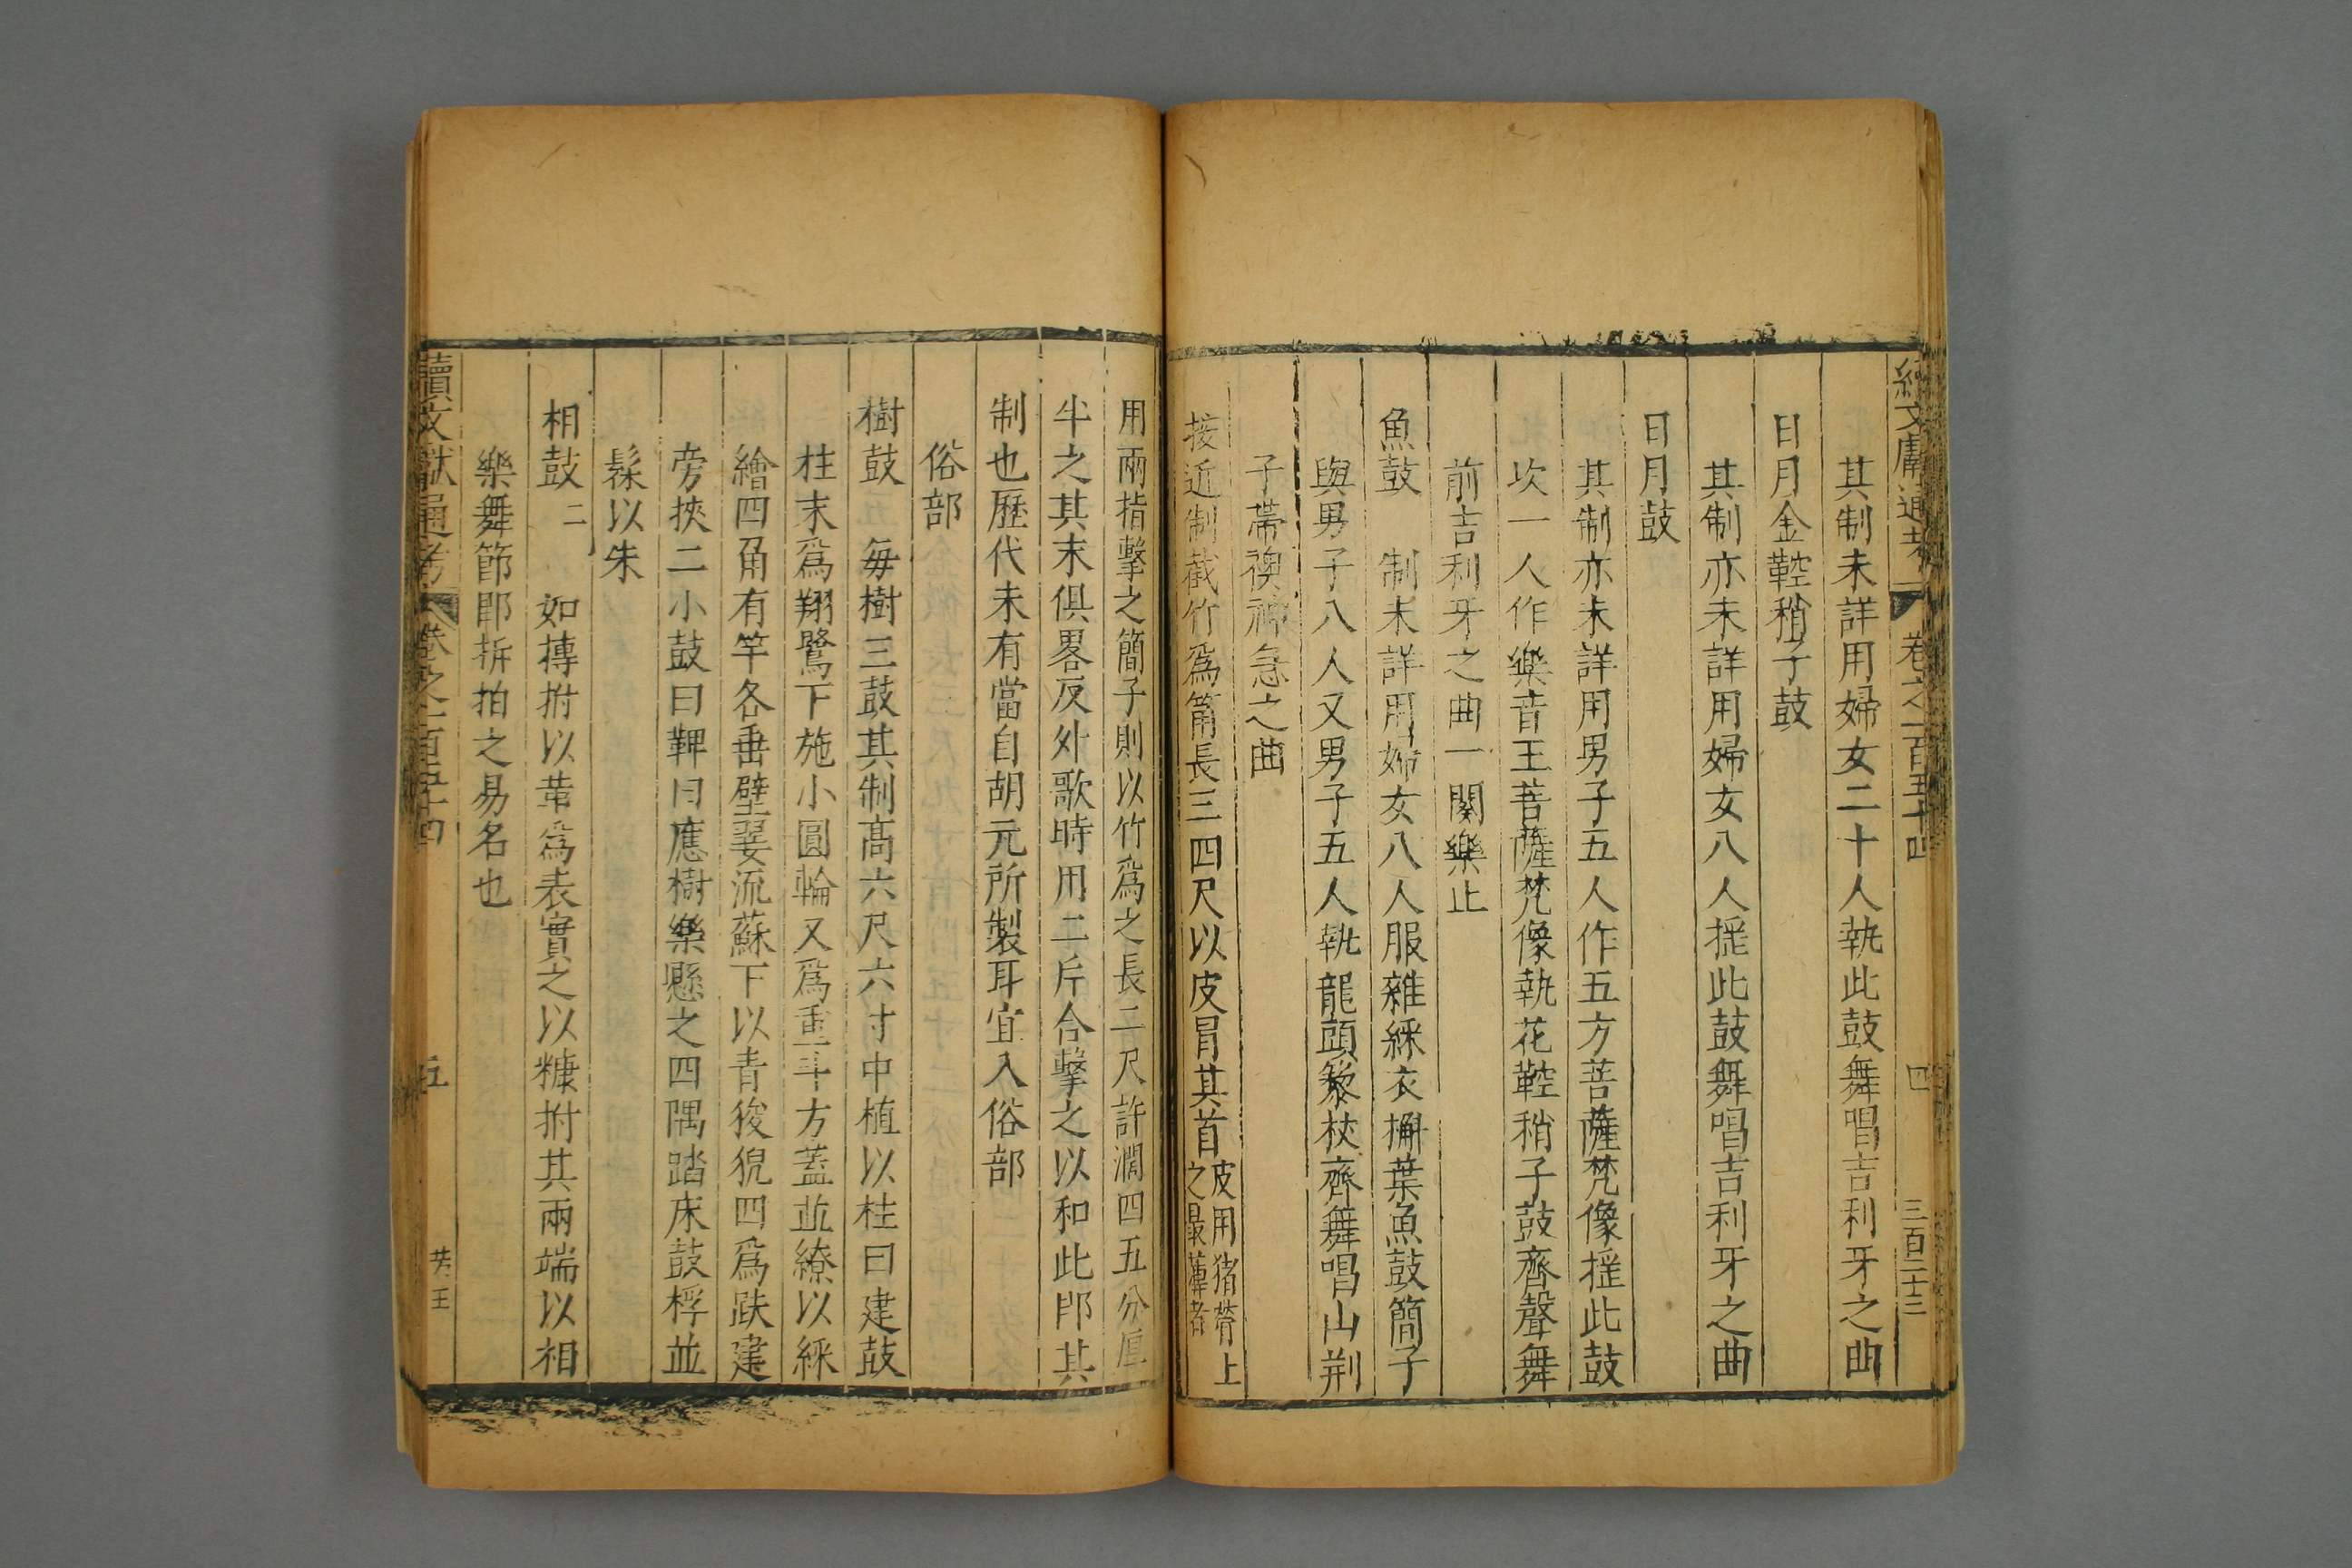 續文獻通考 卷之一百五十四 四 三百二十三
其制未詳用婦女二十人執此鼓舞唱吉利牙之曲
日月金鞚稍子鼓
其制亦未詳用婦女八人搖此鼓舞唱吉利牙之曲
日月鼓
其制亦未詳用男子五人作五方菩薩梵像搖此鼓
次一人作樂音王菩薩梵像執花鞚稍子鼓齊聲舞
前吉利牙之曲一闋樂止
魚鼓 制未詳用婦女八人服雜綵衣槲葉魚鼓簡子
與男子八人又男子五人執龍頭藜杖齊舞唱山荆
子帶襖神急之曲
接近制截竹爲筩長三四尺以皮冐其首皮用猪膋上之最薄者
用兩指擊之簡子則以竹爲之長二尺許濶四五分厚
半之其末俱畧反外歌時用二片合擊之以和此卽其
制也歷代未有當自胡元所製耳宜入俗部
俗部
樹鼓 每樹三鼓其制高六尺六寸中植以柱曰建鼓
柱末爲翔鷺下施小圓輪又爲重斗方蓋並繚以綵
繪四角有竿各垂璧翣流蘇下以青狻猊四爲趺建
旁挾二小鼓曰鞞曰應樹樂懸之四隅踏床鼓桴並
髹以朱
相鼓二 如摶拊以韋爲表實之以糠拊其兩端以相
樂舞節卽拆拍之易名也
續文獻通考 卷之一百五十四 五